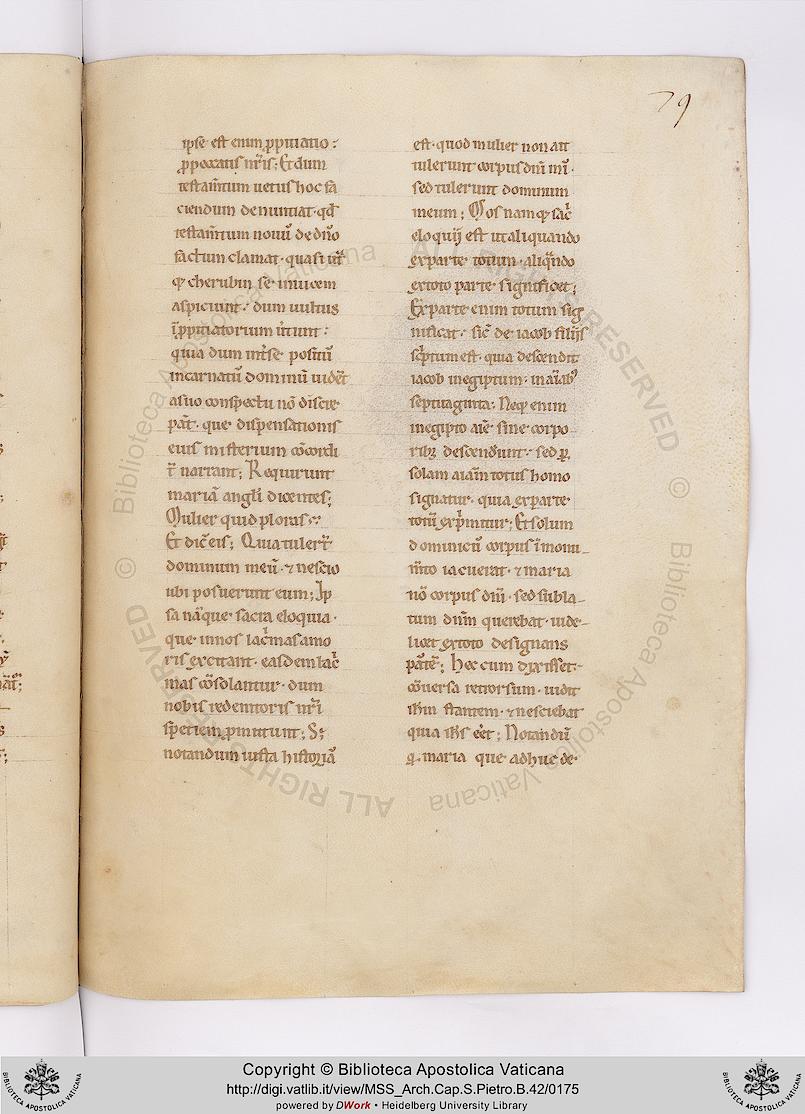 79
ip̄se est enim p̱pitiatio:
p̱ peccatis nr̄is; Et dum
testam̄tum uetus hoc fa
ciendum denuntiat· qd̄
testam̄tum nouū de dn̄o
factum clamat· quasi ut̄
q̄ cherubin se inuicem
aspiciunt· dum uultus
ī p̱pitiatorium ūtunt:
quia dum int̄ se positū
incarnatū dominū uideт̄
a suo conspectu nō discre
pāt· que dispensationis
eius misterium cōcordi
t̄ narrant; Requirunt
mariā angl̄i dicentes;
Mulier quid ploras·:
Et dic̄ eis; Quia tuler̄t
dominum meū· ⁊ nescio
ubi posuerunt eum; Ip
sa nāque sacra eloquia·
que in nos lac̄mas amo
ris excitant· easdem lac̄
mas cōsolantur· dum
nobis redemtoris nr̄i
speciem p̱mittunt; S;
notandum iuxta historiā
est· quod mulier non ait
tulerunt corpus dn̄i mī·
sed tulerunt dominum
meum; Mos namq̄ sac̄
eloquij est ut aliquando
ex parte totum· aliqn̄do
ex toto parte significet;
Ex parte enim totum sig
nificat· sic̄ de iacob filijs
sc̄ptum est· quia descendit
iacob in egiptum· in aīab᾽
septuaginta; Neq̨ enim
in egipto aīe sine corpo
rib᷒ descenderunt· sed p̱
solam aīam totus homo
signatur· quia ex parte
totū exp̄mitur; Et solum
dominicū corpus ī monu
m̄to iacuerat· ⁊ maria
nō corpus dn̄i· sed subla
tum dn̄m querebat· uide
licet ex toto designans
pāte; Hec cum dixisset·
cōuersa retrorsum· uidit
ih̄m stantem· ⁊ nesciebat
quia ih̄s ēet; Notandū
q̱ maria que adhuc de·
Copyright © Biblioteca Apostolica Vaticana
http://digi.vatlib.it/view/MSS_Arch.Cap.S.Pietro.B.42/0175
powered by DWork • Heidelberg University Library